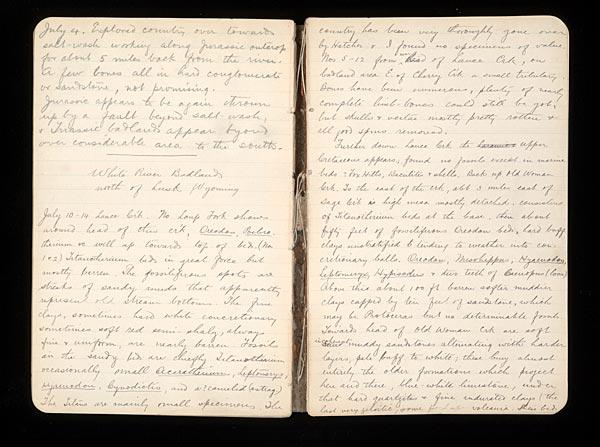 July 4. Explored country over towards
salt-wash working along Jurassic outcrop
for about 5 miles back from the river.
A few bones all in hard conglomerate
or sandstone, not promising.
Jurassic appears to be again thrown
up by a fault beyond salt wash,
& Triassic badlands appear beyond
over considerable area to the south.
White River Badlands
north of Lusk Wyoming
July 10-14 Lance Crk. No Loup Fork shown
around head of this crk, Oreodon,
therium oc. well up towards top of beds. (Nos
1 & 2) Titanotherium beds in great force but
mostly barren. The fossiliferous spots are
streaks of sandy muds that apparently
represent old stream bottoms. The fine
clays, sometimes hard white concretionary
sometimes soft red semi-shaly, always
fine & uniform, are nearly barren. Fossils
in the sandy beds are chiefly Titanotherium
occasionally small Aceratherium, Leptomeryx,
Hyaenodon, Cynodictis, and a camelid (astrag.)
The Titans are mainly small specimens. The
country has been very thoroughly gone over
by Hatcher & I found no specimens of value.
Nos 5-12 from head of Lance Crk, on
badland area E. of Cherry Crk a small tributary.
Bones have been numerous, plenty of nearly
complete limb-bones could still be got,
but skulls & vertae mostly pretty rotten &
all good spms removed.
Further down Lance Crk the upper
Cretaceous appears; found no fossils except in marine
beds = Fox Hills, Baculites & shells. Back up Old Woman
Crk. To the east of the crk, abt 3 miles east of
Sage Crk is high mesa mostly detached, consisting
of Titanotherium beds at the base, then about
fifty feet of fossiliferous Oreodon beds, hard buff
clays unstratified & tending to weather into con-
cretionary balls. Oreodon, Mesohippus, Hyaenodon,
Leptomeryx, Hypisodus & div. teeth of
Above this about 100 ft barren softer muddier
clays capped by ten feet of sandstone, which
may be Protoceras but no determinable fossils.
Towards head of Old Woman Crk are soft
muddy sandstones alternating with harder
layers, pale buff to white; these bury almost
entirely the older formations which project
here and there, blue-white limestone, under
that hard quartzites & fine indurated clays (the
last very plastic, some volcanic. These beds